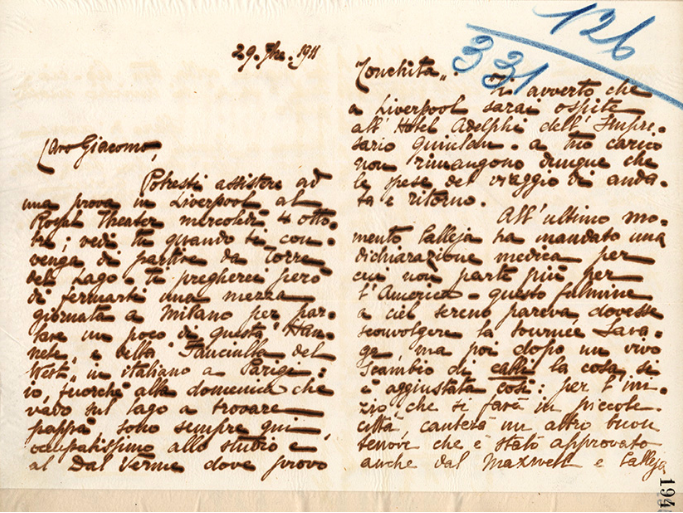 29. 7bre. 1911
Caro Giacomo,
Potresti assistere ad
una prova in Liverpool al
Royal Theater mercoledì 4 otto-
bre; vedi tu quando ti con-
venga di partire da Torre
del Lago - ti pregherei però
di fermarti una mezza
giornata a Milano per par-
lare un poco di questa "Han-
nele" e della "Fanciulla del
West" in italiano a Parigi:
io, fuorchè alla domenica che
vado sul lago a trovare
pappà sono sempre qui,
occupatissimo allo studio e
al Dal Verme dove provo
126
331
Conchita".. Ti avverto che
a Liverpool sarai ospite
all'Hôtel Adelphi dell'Impre-
sario Quinlan - a tuo carico
non rimangono dunque che
le spese del viaggio di anda-
ta e ritorno.
All'ultimo mo-
mento Calleja ha mandato una
dichiarazione medica per
cui non parte più per
l'America - questo fulmine
a ciel sereno pareva dovesse
sconvolgere la tournée Sava-
ge, ma poi dopo un vivo
scambio di la cosa si
è aggiustata così: per l'ini-
zio che si farà in piccole
città, canterà un altro buon
tenore che è stato approvato
anche dal Maxwell e Calleja
194